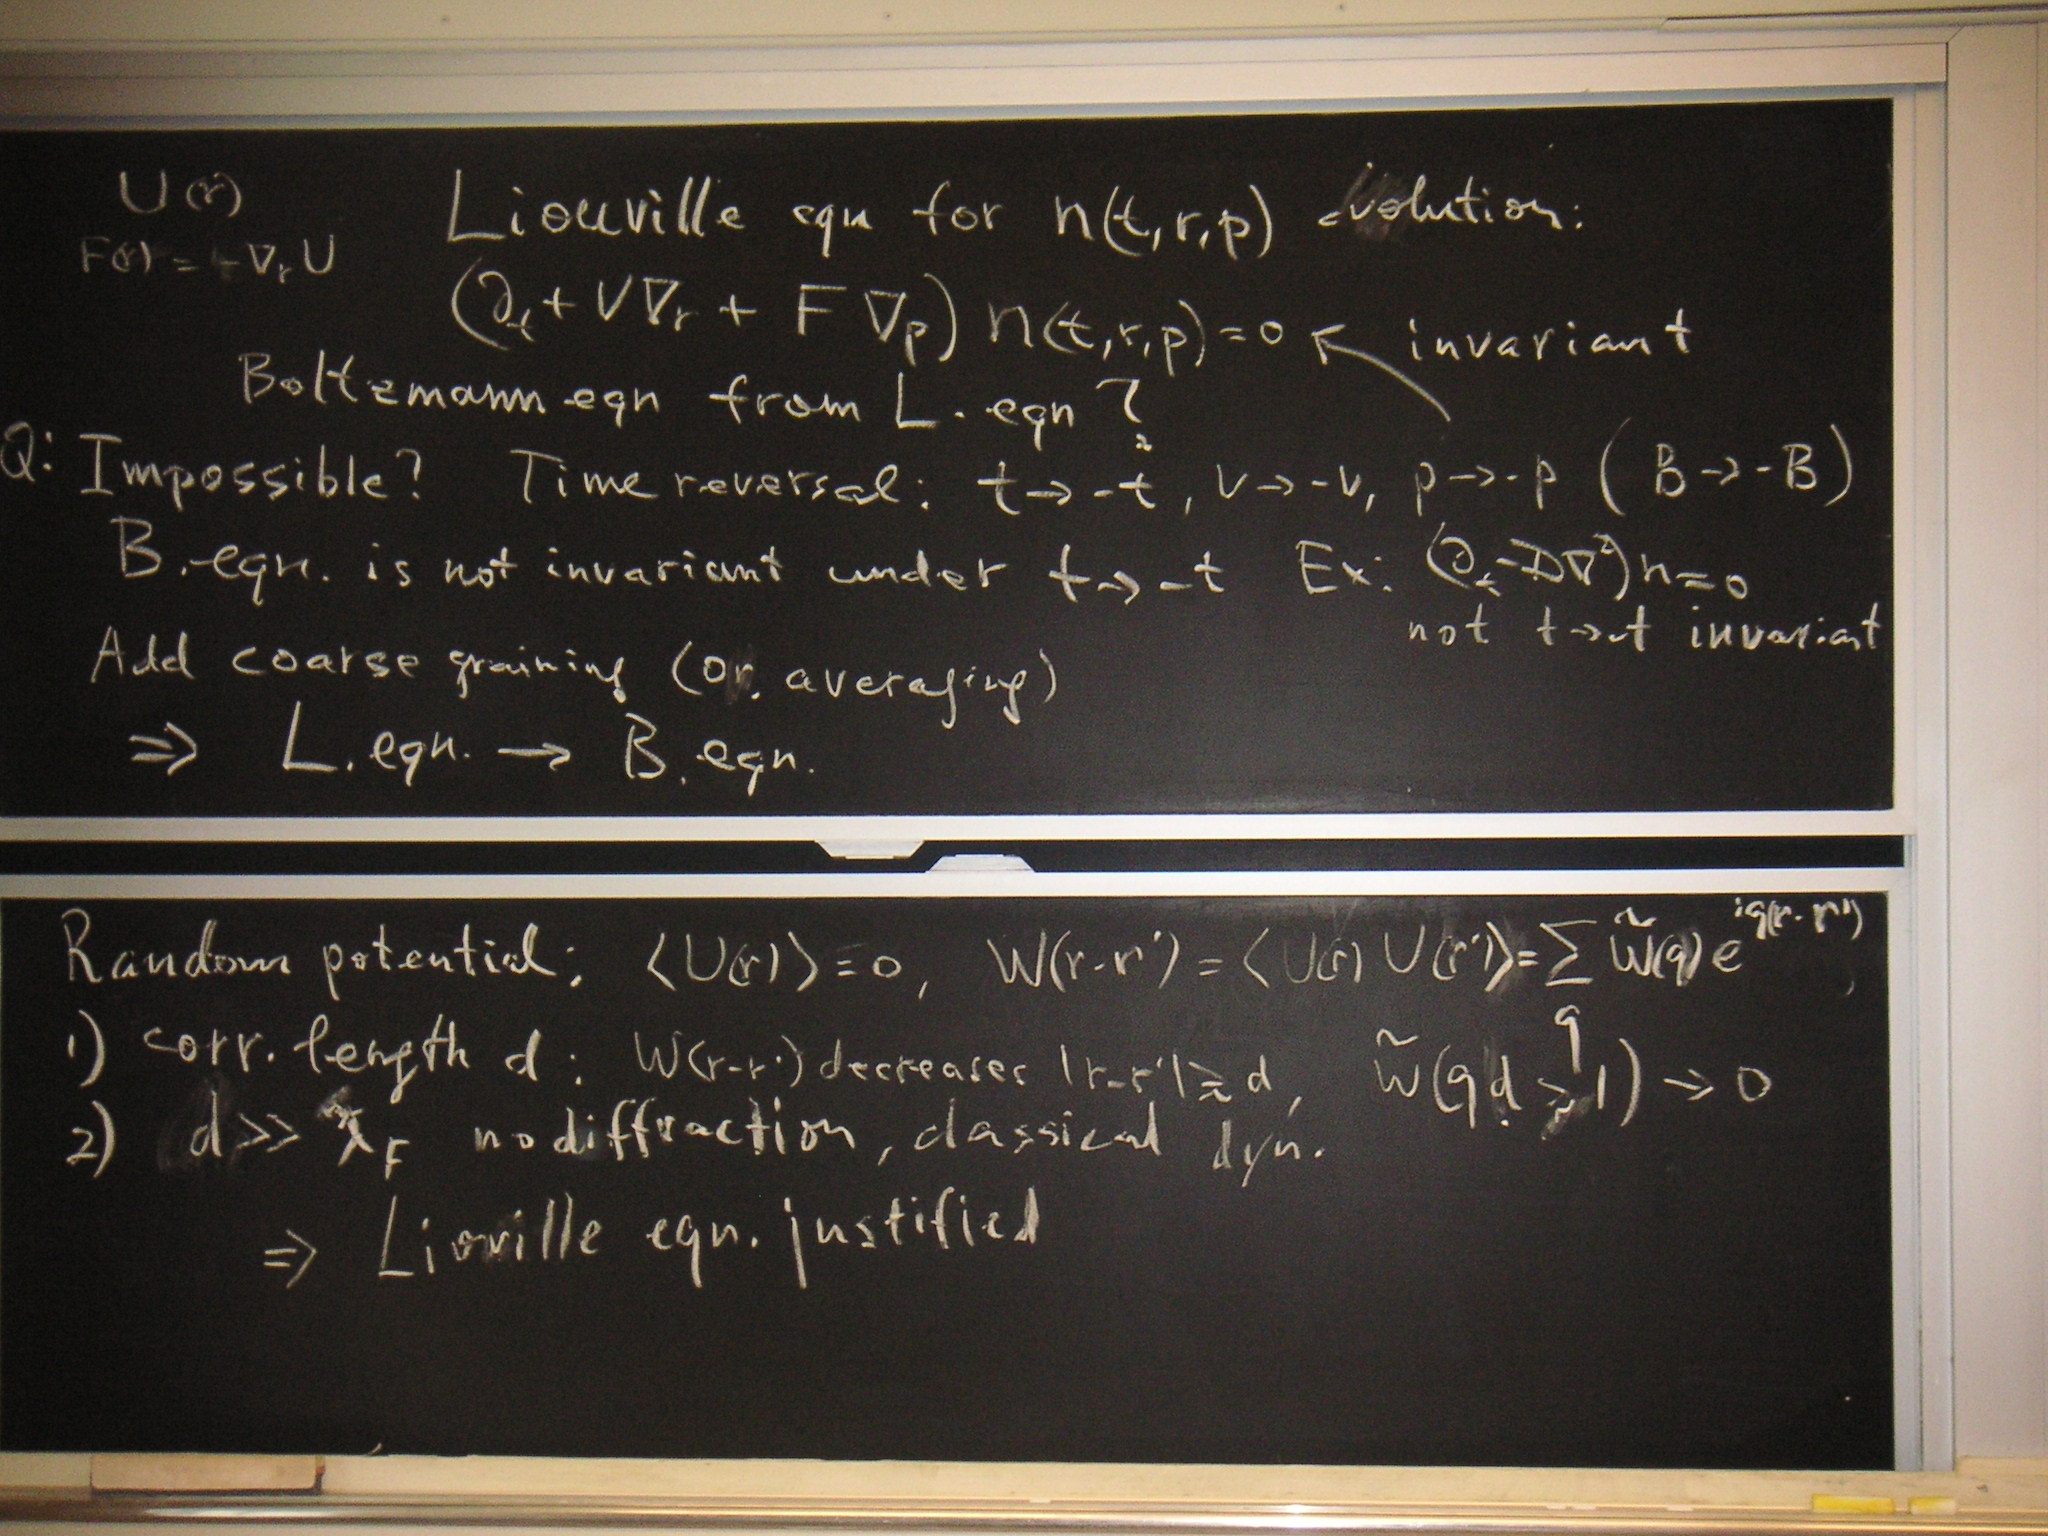 U(r)
F(r) = -∇_r U
Liouville eqn for n(t,r,p) evolution:
(∂_t + V∇_r + F∇_p) n(t,r,p) = 0 ↖ invariant
Boltzmann eqn from L. eqn ?
Q: Impossible? Time reversal: t→-t, v→-v, p→-p (B→-B)
B. eqn. is not invariant under t→-t Ex: (∂_t - D∇²)n=0
not t→-t invariant
Add coarse graining (or averaging)
⇒ L. eqn. → B. eqn.
Random potential: ⟨U(r)⟩=0, W(r-r') = ⟨U(r) U(r')⟩ = Σ_q W̃(q) e^{iq(r-r')}
1) corr. length d: W(r-r') decreases |r-r'| ≳ d, W̃(qd ≳ 1) → 0
2) d >> λ_F no diffraction, classical dyn.
⇒ Lioville eqn. justified